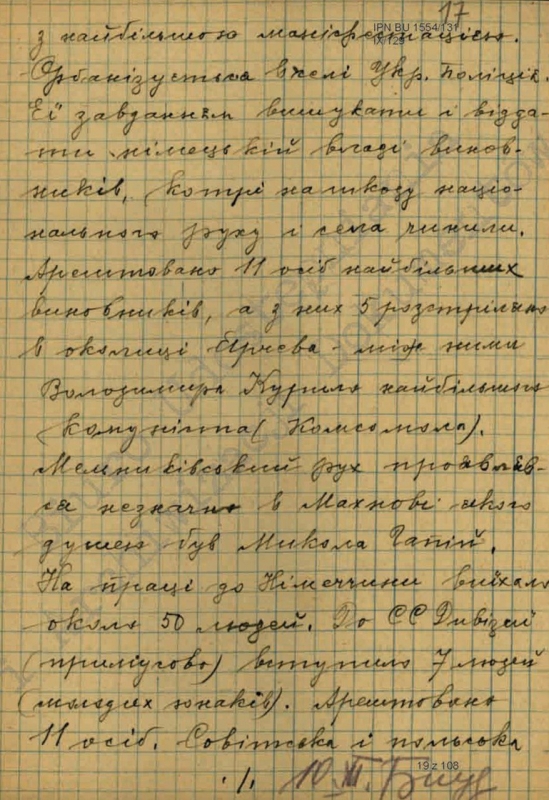 17
IPN BU 1554/131
IX 129
з найбільшою маніфестацією.
Орґанізується в селі Укр. Поліція.
Її завданням вишукати і відда-
ти німецькій владі винов-
ників, котрі на шкоду націо-
нального руху і села чинили.
Арештовано 11 осіб найбільших
виновників, а з них 5 розстріляно
в околиці Ярчева - між ними
Володимира Курило найбільшого
комуніста (Комсомола).
Мельниківський рух проявляв-
ся незначно в Махнові якого
душею був Микола Гапій.
На праці до Німеччини виїхало
около 50 людей. До СС Дивізії
(примусово) вступило 7 людей
(молодих юнаків). Арештовано
11 осіб. Совітська і польська
./.
19 z 108